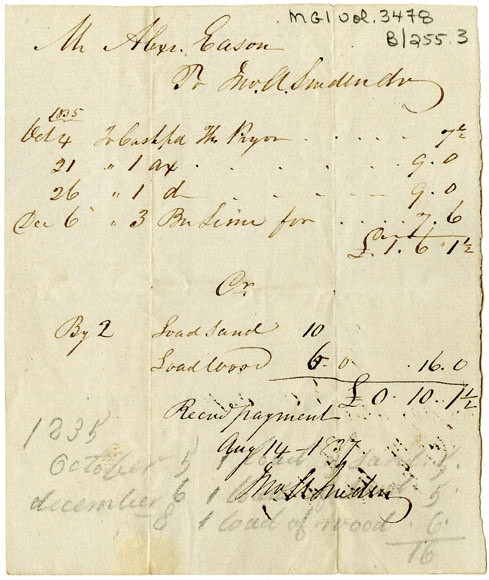 MG1 Vol. 3478
B/255.3
Mr Alexr. Eason
To Jno. A. Sneden Dr
1835
Oct 4 To Cash pd Thos Pryor 7½
21 " 1 ax 9. 0
26 " 1 do 9. 0
Dec 6 " 3 Bu Lime for 7. 6
£1. 6 1½
Cr
By 2 Load Sand 10
Load Wood 6 0 . 16. 0
£ 0. 10. 1½
Recvd payment
Aug 14 - 1837
Jno A Sneden
1835
October 5 1 load 5.
december 6 1 5
8 1 load of wood . 6.
16